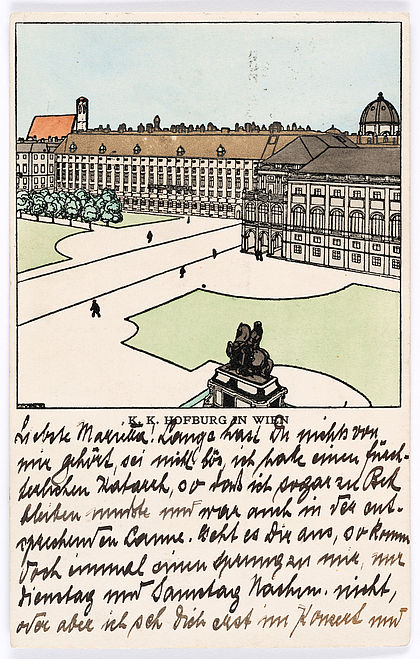 K. K. HOFBURG IN WIEN
Liebste Marietta! Lange hast Du nichts von
mir gehört, sei nicht bös, ich habe einen fürch-
terlichen Katarrh, so daß ich sogar zu Bett
bleiben musste und war auch in der ent-
sprechenden Laune. Geht es Dir aus, so komm
doch einmal einen Sprung zu mir, nur
Dienstag und Samstag Nachm. nicht,
oder aber ich seh Dich erst im Konzert und